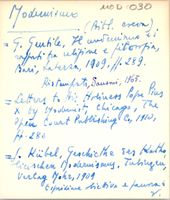 Modernismo
MOD 030
(Bitt. carea)
= G. Gentile, Il modernismo e i
rapporti fra religione e filosofia,
Bari, Laterza, 1909, pp. 289.
Ristampato, Sansoni, 1965.
= Letters to His Holiness Pope Pius
X by Modernist, Chicago, The
Open Court Publishing Co, 1910,
pp. 280
= J. Kübel, Geschichte des Katho
lischen Modernismus, Tübingen,
Verlag Mohr, 1909
Espositione
v.